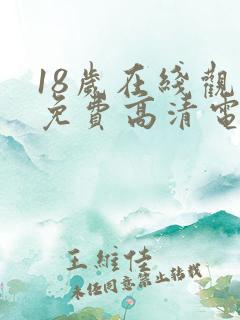 18歲在綫觀
免費高清電
王維佳
未任同意禁止转载